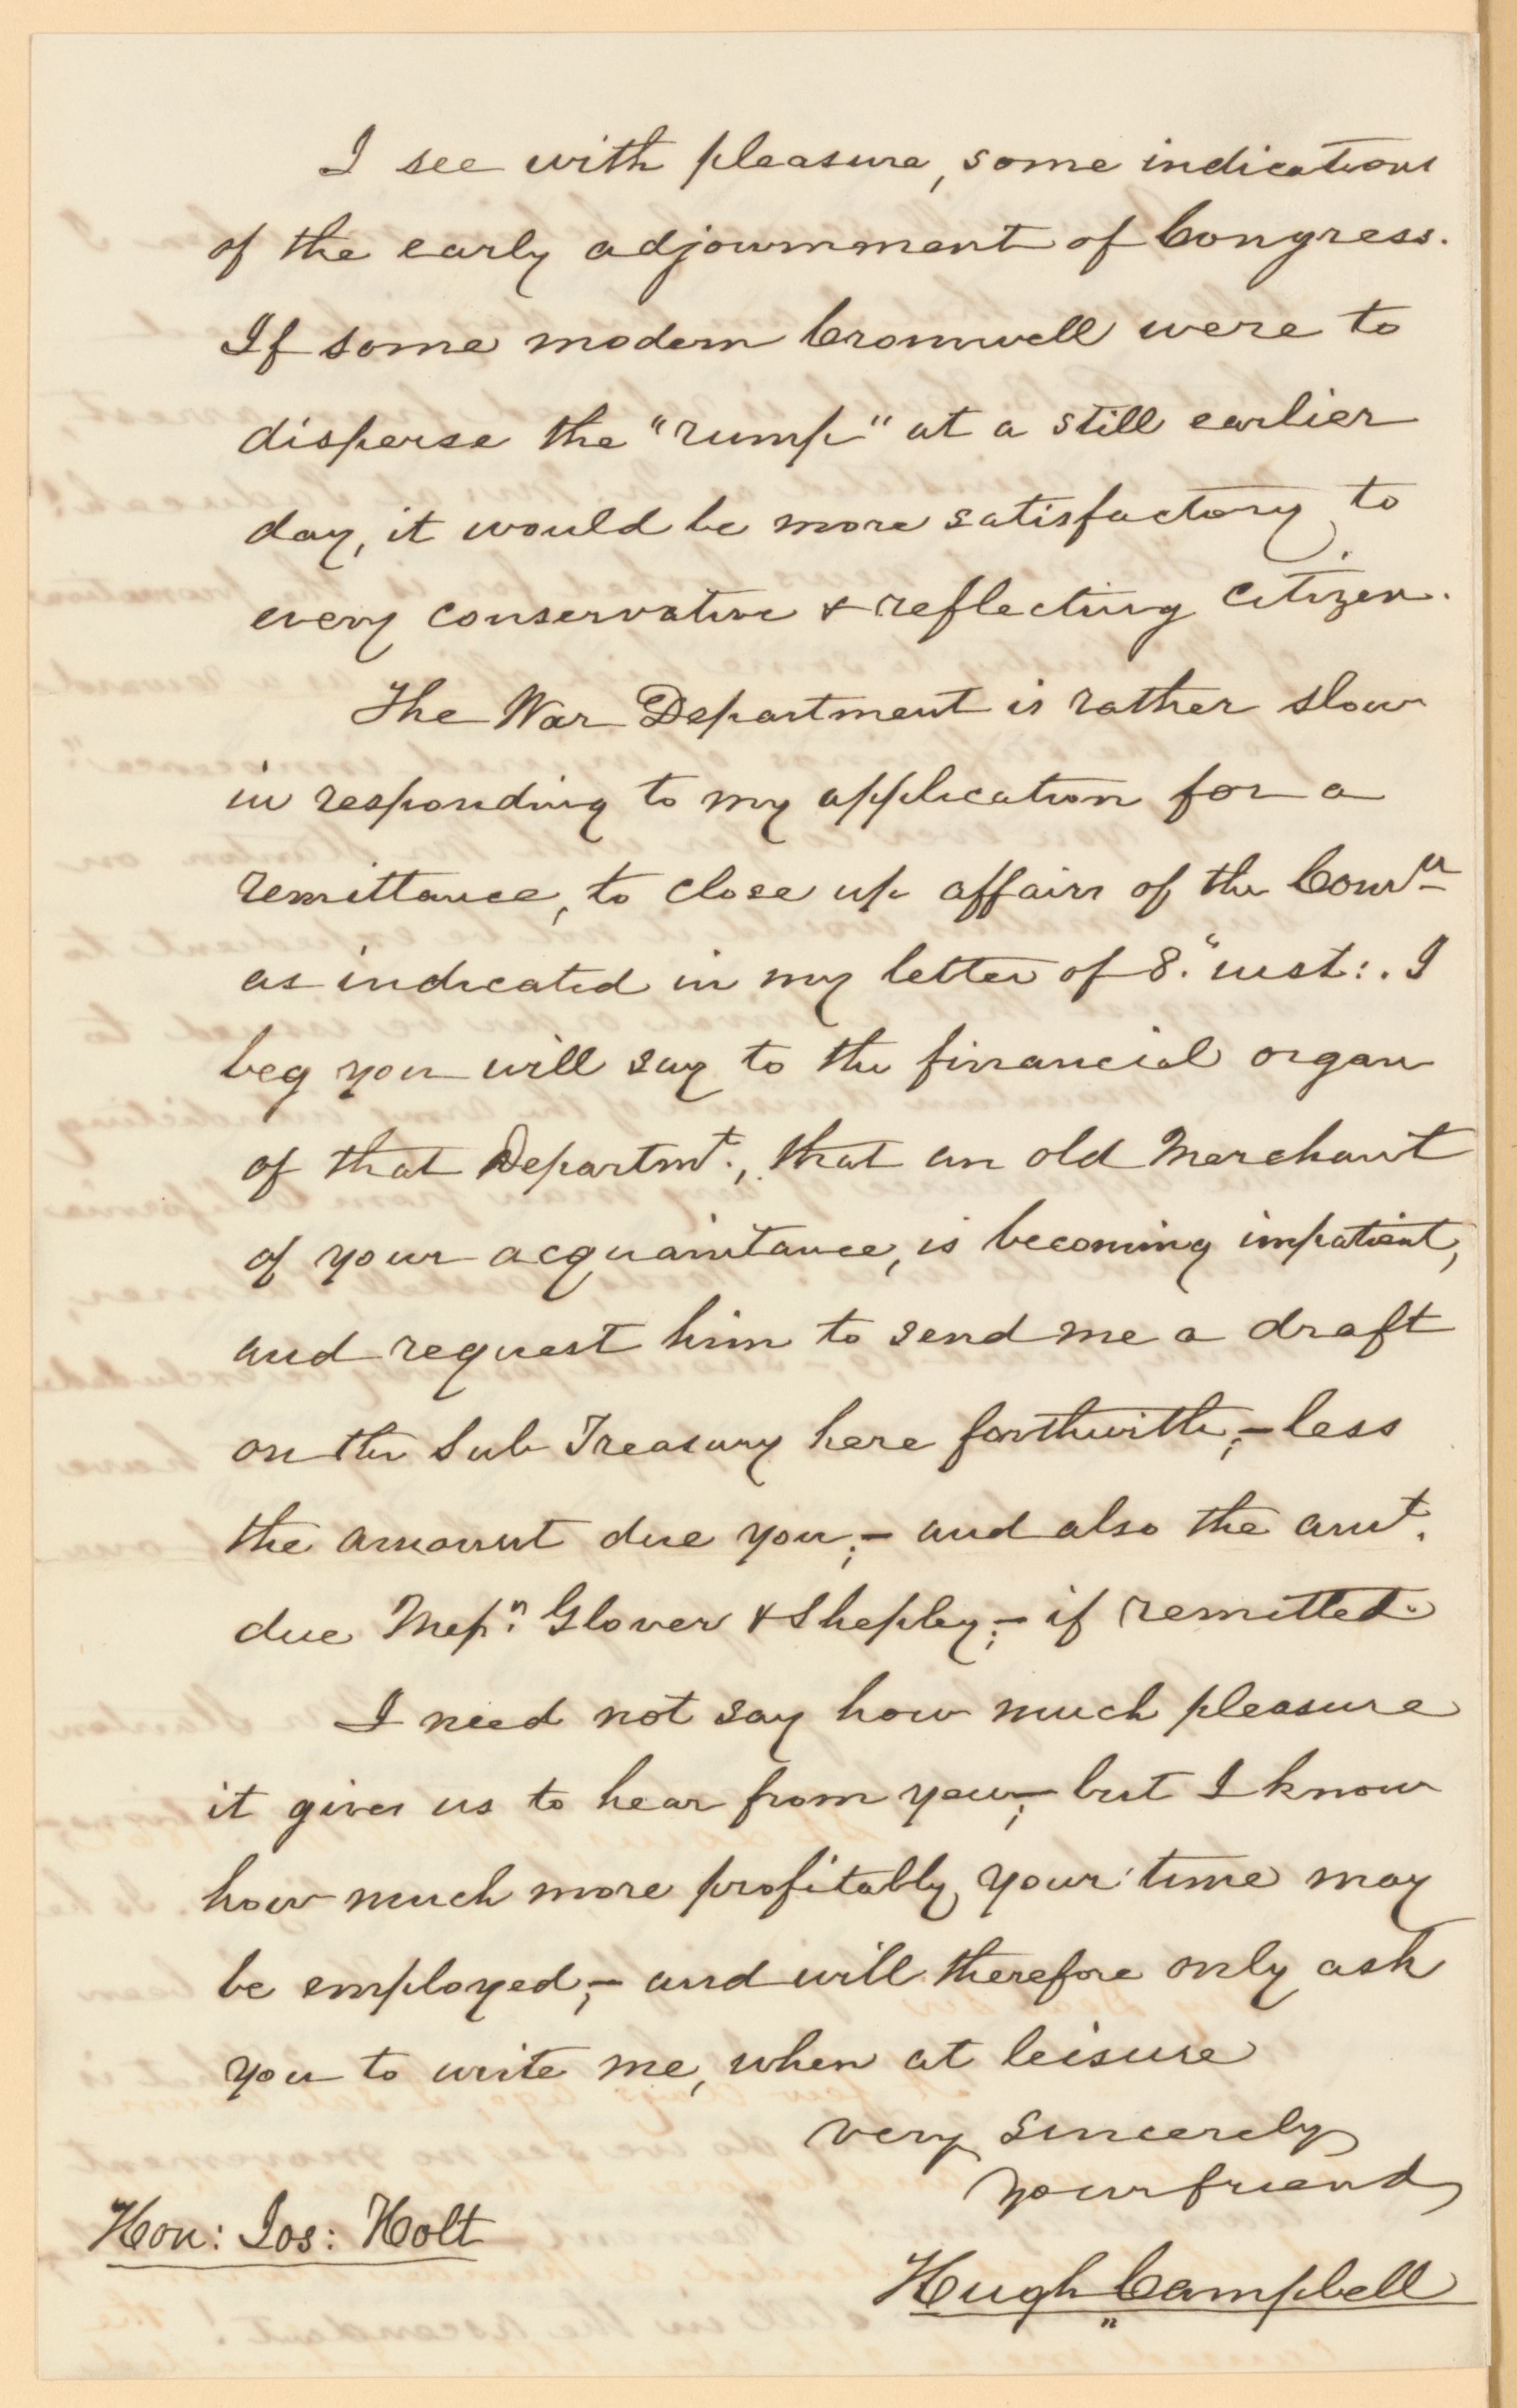 I see with pleasure, some indications
of the early adjournment of Congress.
If some modern Cromwell were to
disperse the "rump" at a still earlier
day, it would be more satisfactory to
every conservative & reflecting citizen.
The War Department is rather slow
in responding to my application for a
remittance, to close up affairs of the Comn
as indicated in my letter of 8." inst:. I
beg you will say to the financial organ
of that Departmt., that an old Merchant
of your acquaintance, is becoming impatient,
and request him to send me a draft
on the Sub Treasury here forthwith;- less
the amount due you;- and also the amt.
due Messrs. Glover & Shepley;- if remitted.
I need not say how much pleasure
it gives us to hear from you;- but I know
how much more profitably your time may
be employed;- and will therefore only ask
you to write me, when at leisure
very sincerely
your friend
Hon: Jos: Holt
Hugh Campbell